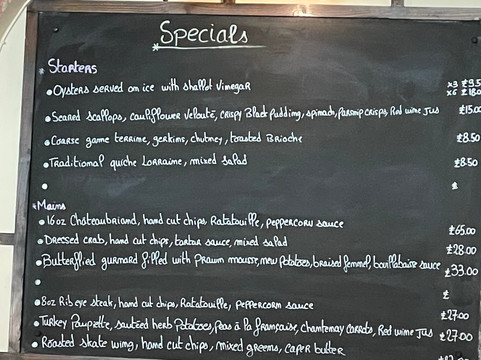 * Specials
* Starters
• Oysters served on ice with shallot vinegar x3 £9.5
x6 £18.0
• Seared Scallops, cauliflower velouté, crispy Black pudding, spinach, parsnip crisps, Red wine Jus £15.00
• Coarse game terrine, gerkins, chutney, toasted Brioche £8.50
• Traditional quiche Lorraine, mixed salad £8.50
• £
* Mains
• 16oz Chateaubriand, hand cut chips, Ratatouille, peppercorn sauce £65.00
• Dressed crab, hand cut chips, tartar sauce, mixed salad £28.00
• Butterflied gurnard filled with prawn mousse, new potatoes, braised fennel, bouillabaise sauce £33.00
• £
• 8oz Ribeye steak, hand cut chips, Ratatouille, peppercorn sauce £27.00
• Turkey Paupiette, sautéed herb Potatoes, pois à la française, chantenay carrots, Red wine Jus £27.00
• Roasted skate wing, hand cut chips, mixed greens, caper butter